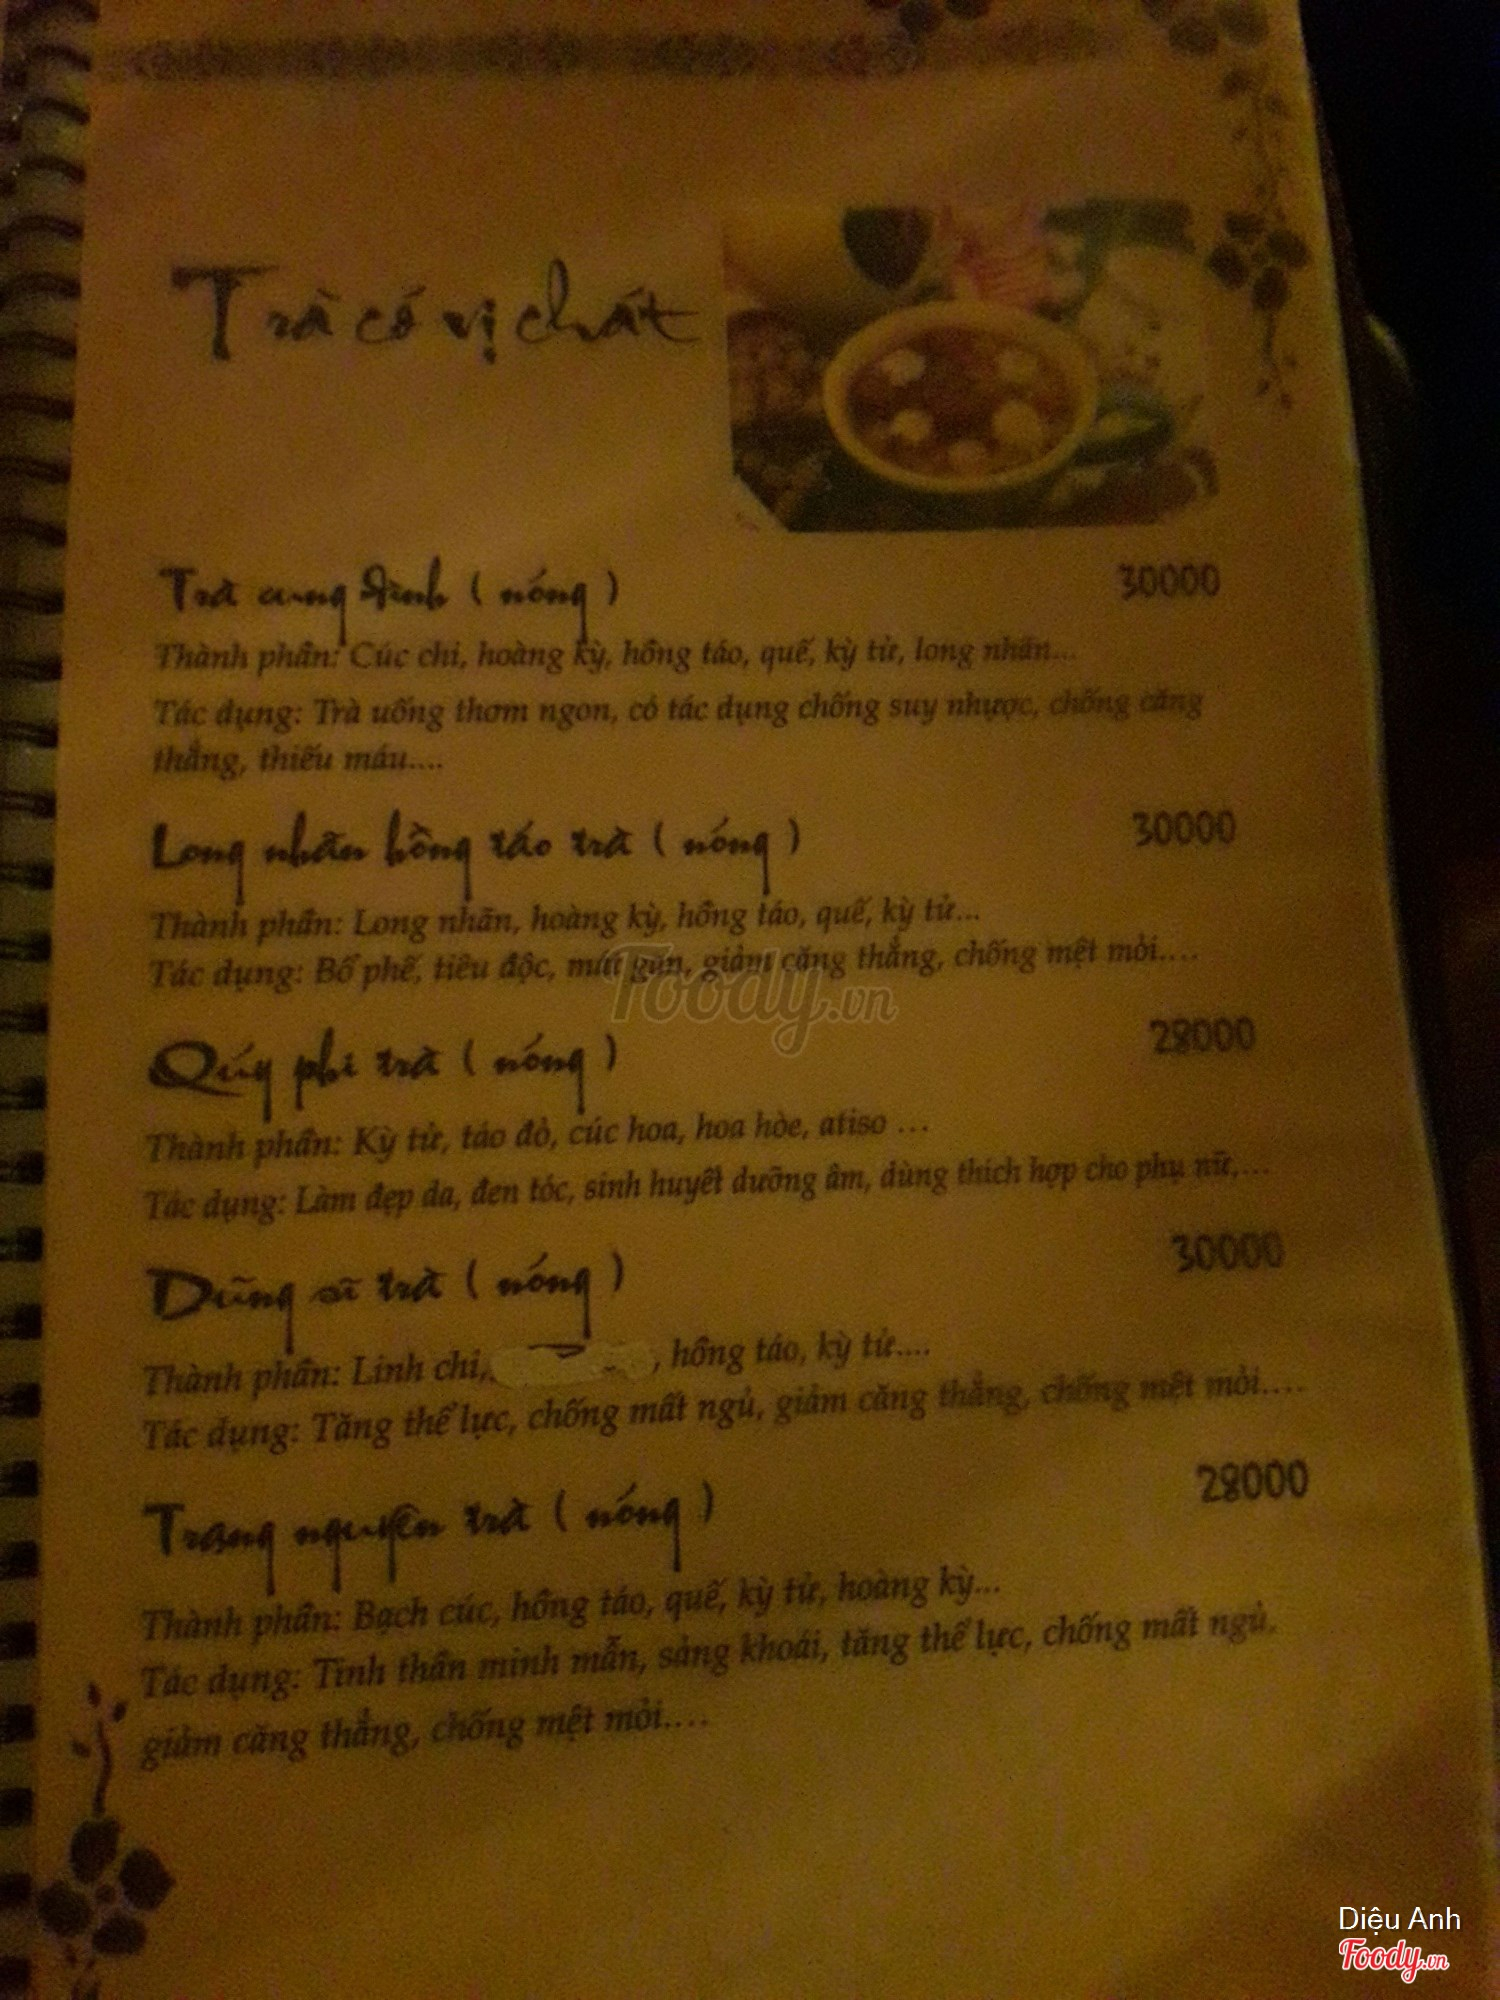 Trà có vị chát
Trà cung đình ( nóng ) 30000
Thành phần: Cúc chi, hoàng kỳ, hồng táo, quế, kỳ tử, long nhãn...
Tác dụng: Trà uống thơm ngon, có tác dụng chống suy nhược, chống căng
thẳng, thiếu máu....
Long nhãn hồng táo trà ( nóng ) 30000
Thành phần: Long nhãn, hoàng kỳ, hồng táo, quế, kỳ tử...
Tác dụng: Bổ phế, tiêu độc, mát gan, giảm căng thẳng, chống mệt mỏi....
Foody.vn
Qúy phi trà ( nóng ) 28000
Thành phần: Kỳ tử, táo đỏ, cúc hoa, hoa hòe, atiso ...
Tác dụng: Làm đẹp da, đen tóc, sinh huyết dưỡng âm, dùng thích hợp cho phụ nữ,...
Dũng sĩ trà ( nóng ) 30000
Thành phần: Linh chi, , hồng táo, kỳ tử....
Tác dụng: Tăng thể lực, chống mất ngủ, giảm căng thẳng, chống mệt mỏi....
Trạng nguyên trà ( nóng ) 28000
Thành phần: Bạch cúc, hồng táo, quế, kỳ tử, hoàng kỳ...
Tác dụng: Tinh thần minh mẫn, sảng khoái, tăng thể lực, chống mất ngủ,
giảm căng thẳng, chống mệt mỏi....
Diệu Anh
Foody.vn